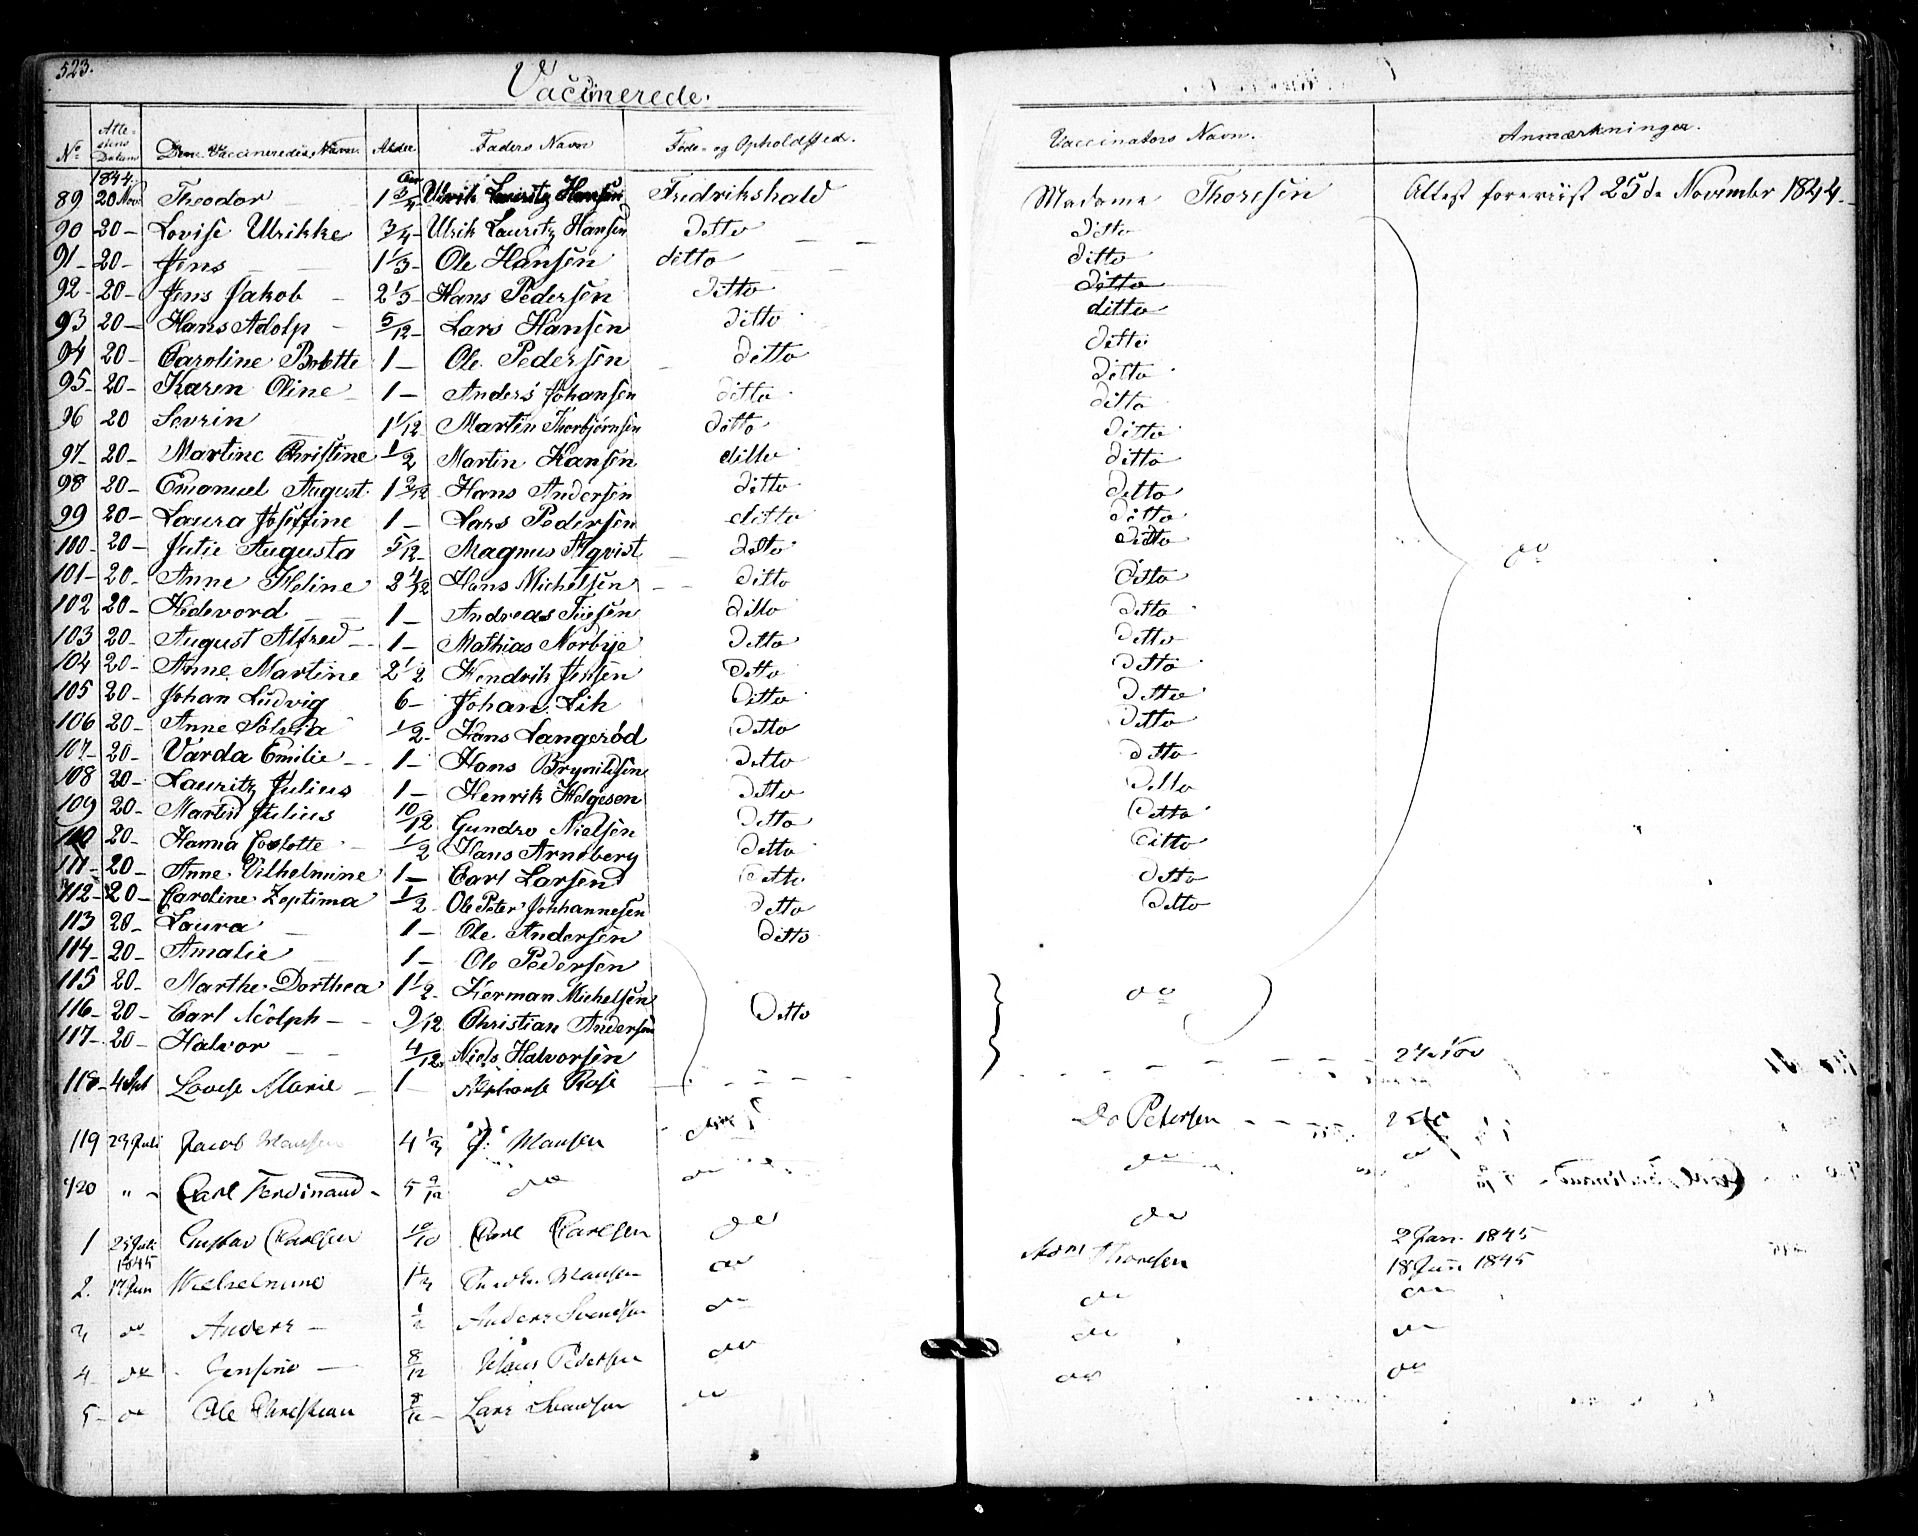 523.
Vaccinerede.
No | Atte-stens Datum | Den Vaccineredes Navn. | Alder | Faders Navn | Føde- og Opholdssted. | Vaccinators Navn. | Anmærkninger.
1844.
89 20 Nov Theodor 1 3/4 Ulrik Lauritz Hansen Fredrikshald Madame Thoresen Attest foreviist 25de November 1844.
90 20 Lovise Ulrikke 3/4 Ulrik Lauritz Hansen ditto ditto
91 20 Jens 1 1/3 Ole Hansen ditto ditto
92 20 Jens Jakob 2 1/3 Hans Pedersen ditto ditto
93 20 Hans Adolp 5/12 Lars Hansen ditto ditto
94 20 Caroline Bolette 1 Ole Pedersen ditto ditto
95 20 Karen Oline 1 Anders Johansen ditto ditto
96 20 Severin 1 1/12 Martin Thorbjørnsen ditto ditto
97 20 Martine Christine 1/2 Martin Hansen ditto ditto
98 20 Emanuel August 1 2/12 Hans Andersen ditto ditto
99 20 Laura Josefine 1 Lars Pedersen ditto ditto
100 20 Julie Augusta 5/12 Magnus Aqvist ditto ditto do
101 20 Anne Heline 2 4/12 Hans Michelsen ditto ditto
102 20 Hedevord 1 Andreas ditto ditto
103 20 August Alfred 1 Mathias Norbye ditto ditto
104 20 Anne Martine 2 1/2 Hendrik Jensen ditto ditto
105 20 Johan Ludvig 6 Johan Lik ditto ditto
106 20 Anne 1/2 Hans Langerød ditto ditto
107 20 Varda Emilie 1 Hans Brynildsen ditto ditto
108 20 Lauritz Julius 1 Henrik Helgesen ditto ditto
109 20 Martin Julius 10/12 Gundro Nielsen ditto ditto
110 20 Hanna 1/2 Hans Arneberg ditto ditto
111 20 Anne Vilhelmine 1 Carl Larsen ditto ditto
112 20 Caroline Zeptima 1/2 Ole Peter Johhannesen ditto ditto
113 20 Laura 1 Ole Andersen ditto
114 20 Amalie 1 Ole Pedersen
115 20 Marthe Dorthea 1 1/2 Herman Michelsen do
116 20 Carl Adolph 9/12 Christian Andersen Ditto
117 20 Halvor 4/12 Niels Halvorsen
118 4 Spt Lovise Marie 1 Rose
119 23 Juli Jacob Hansen 4 1/3 J. Hansen Do Petersen
120 " Carl Ferdinand 5 9/12 do do do do
1 25 Juli Gustav Carlsen 10/10 Carl Carlsen do do 2 Jan. 1845
1845
2. 17 Jun Wilhelmine 1 1/3 Hansen do Mdm Thoresen 18 Juni 1845
3 do Anders 1/2 Anders Svendsen do do do
4 do Jensine 8/12 Pedersen do do do
5 do Ole Christian 8/12 Lars do do